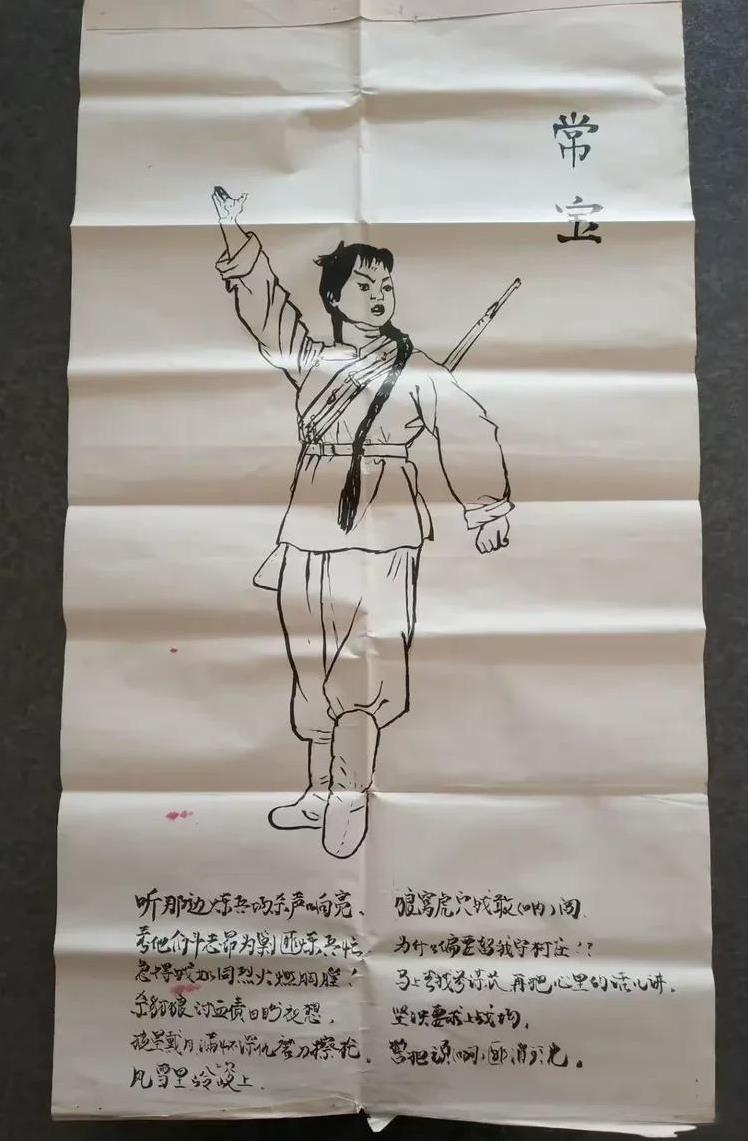 常宝
听那边炼兵场杀声响亮、
看他们斗志昂为剿匪炼兵忙,
急得我如同烈火燃胸膛!
杀豺狼讨血债日盼夜想,
披星戴月满怀深仇磨刀擦枪,
风雪里上.
狼窝虎穴我敢(呐)闯.
为什么偏要留我守村庄!?
马上去找参谋长再把心里的话儿讲.
坚决要求上战场,
誓把顽(啊)匪消灭光。